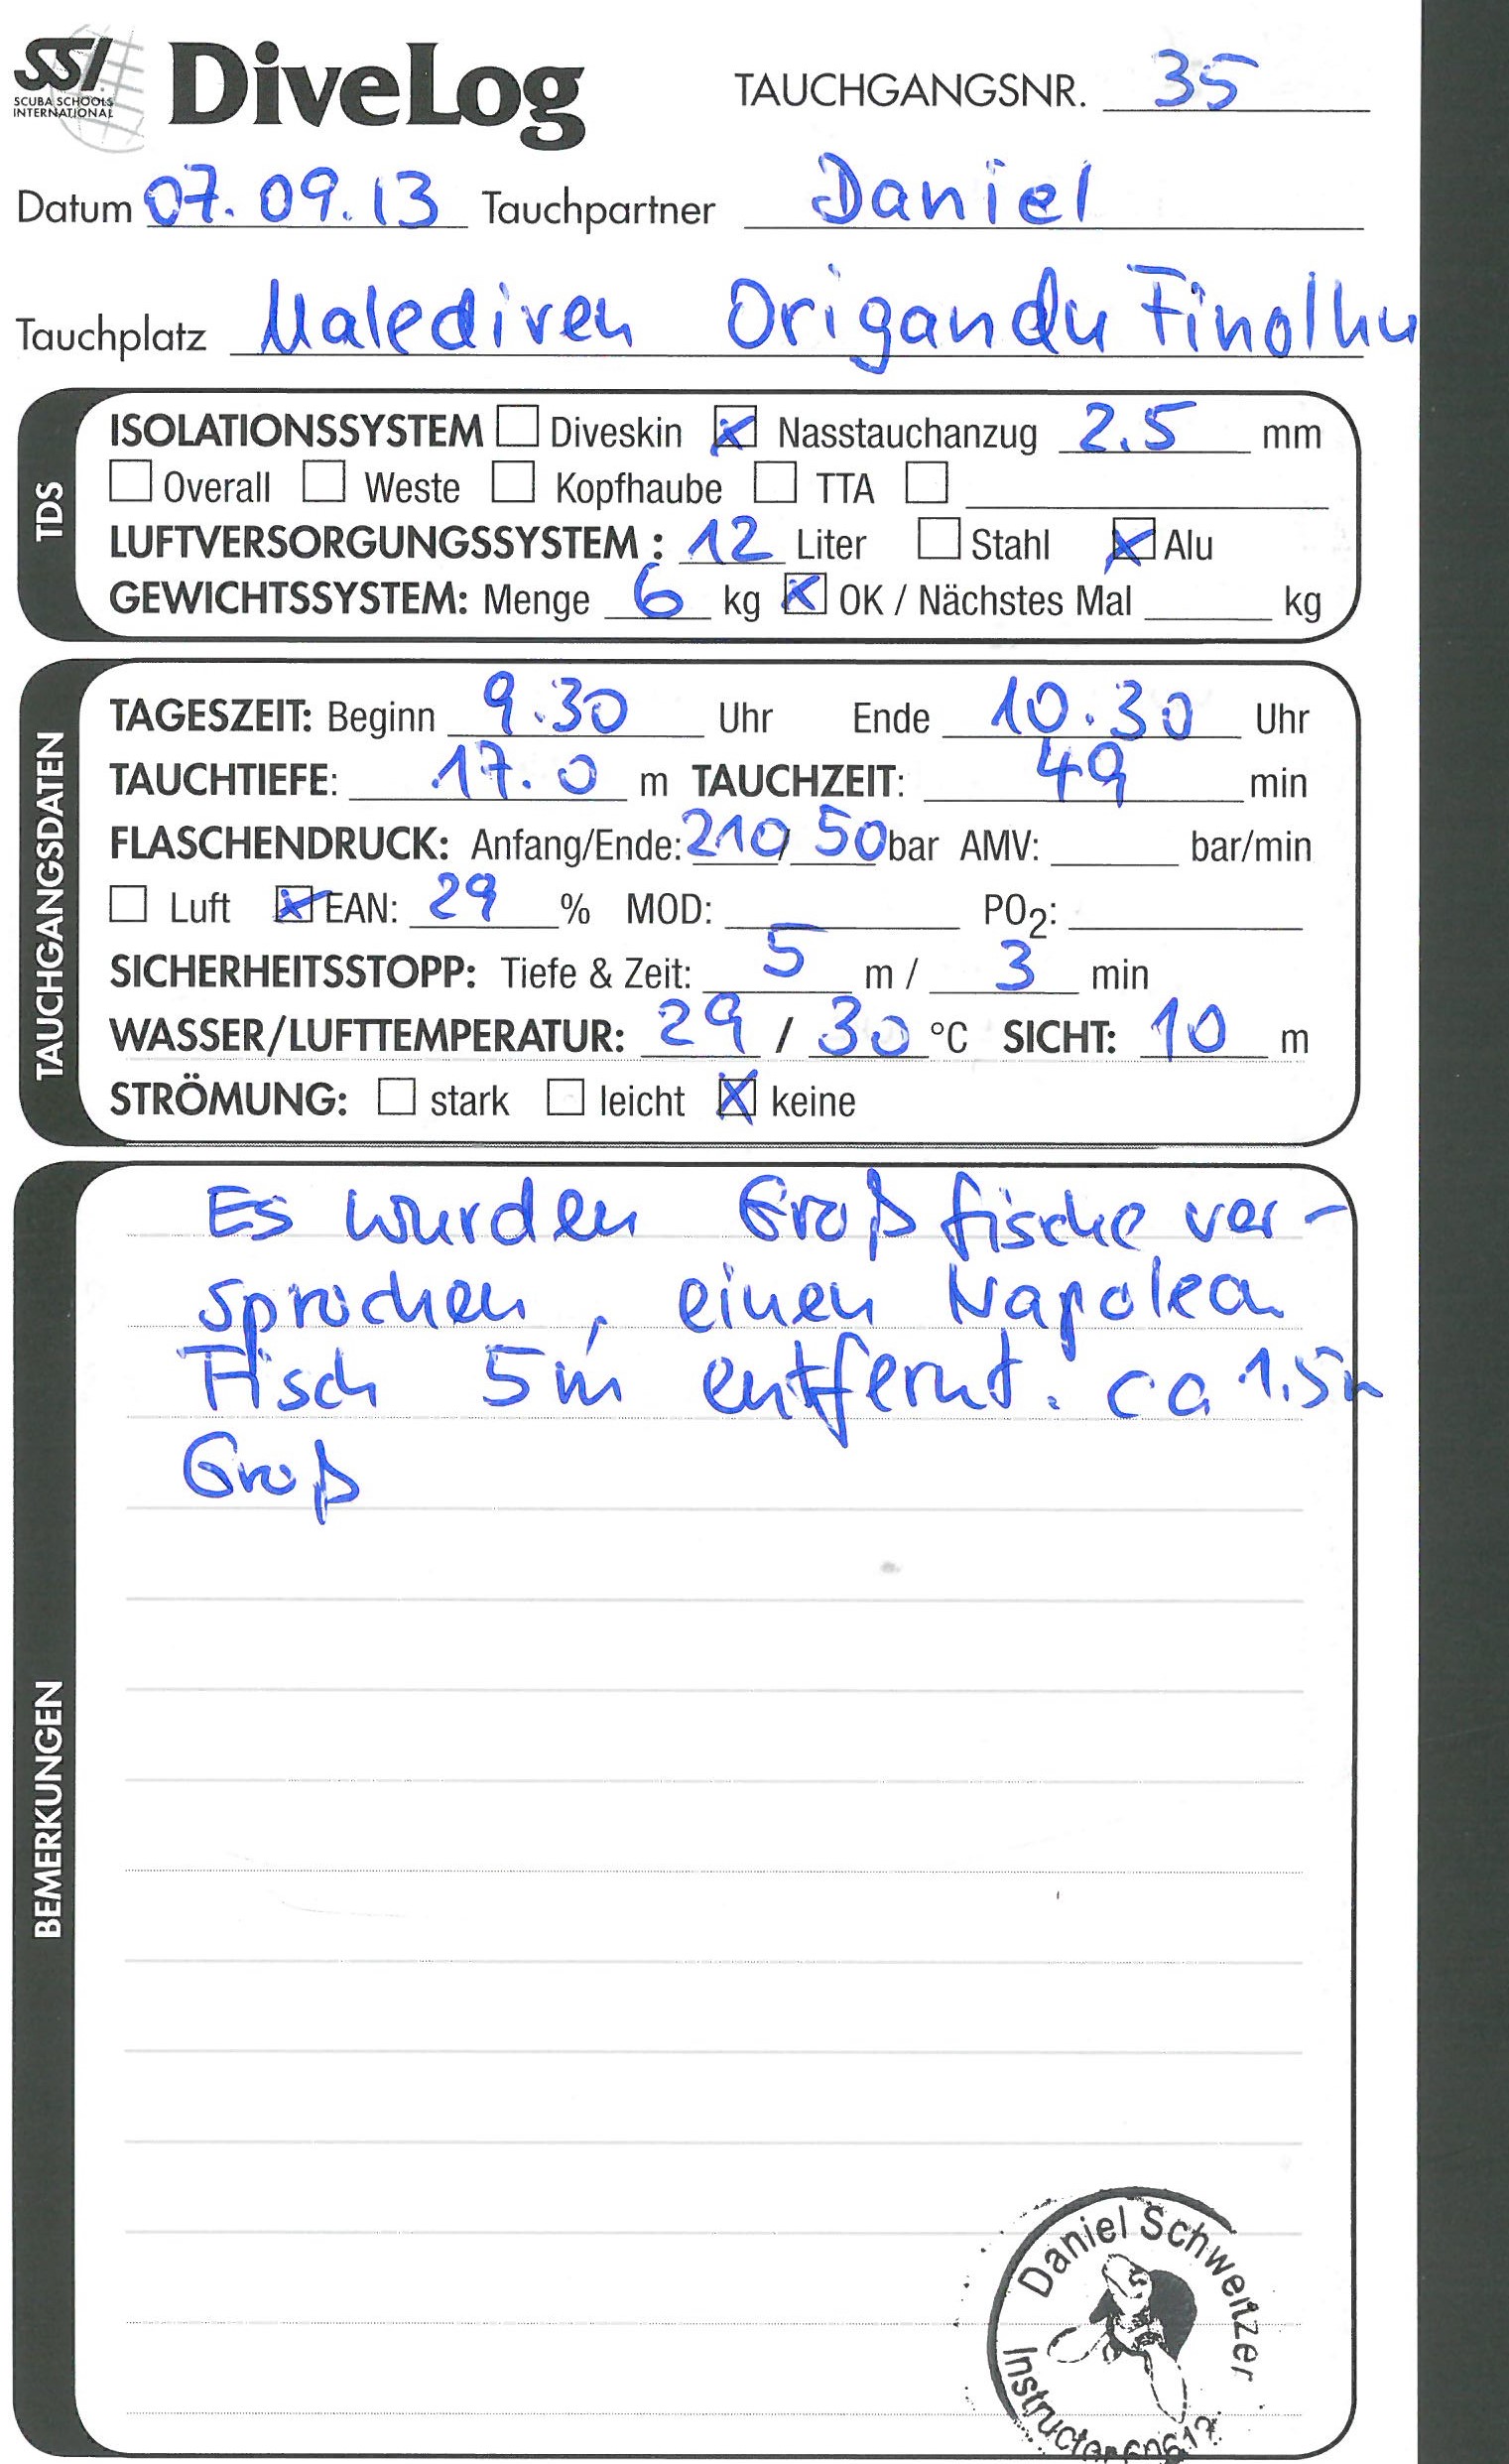 SSI DiveLog TAUCHGANGSNR. 35
SCUBA SCHOOLS
INTERNATIONAL
Datum 07.09.13 Tauchpartner Daniel
Tauchplatz Malediven Origandu Finolhu
TDS
ISOLATIONSSYSTEM Diveskin Nasstauchanzug 2.5 mm
Overall Weste Kopfhaube TTA
LUFTVERSORGUNGSSYSTEM: 12 Liter Stahl Alu
GEWICHTSSYSTEM: Menge 6 kg OK / Nächstes Mal kg
TAUCHGANGSDATEN
TAGESZEIT: Beginn 9.30 Uhr Ende 10.30 Uhr
TAUCHTIEFE: 17.0 m TAUCHZEIT: 49 min
FLASCHENDRUCK: Anfang/Ende: 210/ 50 bar AMV: bar/min
Luft EAN: 29 % MOD: PO2:
SICHERHEITSSTOPP: Tiefe & Zeit: 5 m / 3 min
WASSER/LUFTTEMPERATUR: 29 / 30 °C SICHT: 10 m
STRÖMUNG: stark leicht keine
BEMERKUNGEN
Es wurden Großfische ver-
sprochen, einen Napoleon
Fisch 5m entfernt. ca 1.5m
Groß
Daniel Schweitzer
Instructor